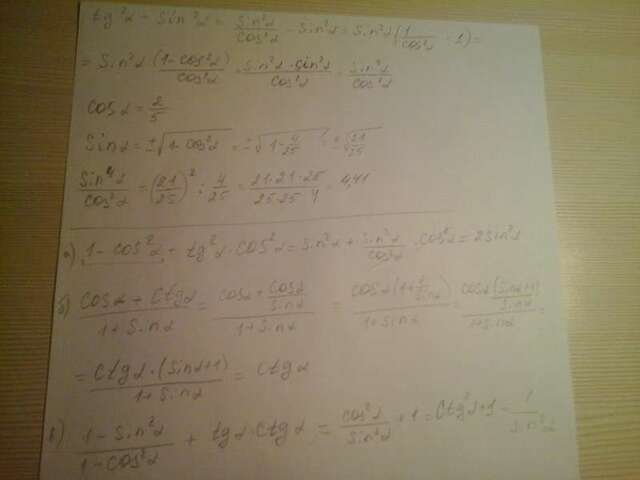 tg²α - Sin²α = Sin²α/Cos²α - Sin²α = Sin²α(1/Cos²α - 1) =
= Sin²α · (1-cos²α)/Cos²α = Sin²α · sin²α/Cos²α = Sin⁴α/Cos²α
Cosα = 2/5
Sinα = ±√(1-cos²α) = ±√(1-4/25) = ±√(21/25)
Sin⁴α/Cos²α = (21/25)² : 4/25 = 21·21·25/25·25·4 = 4,41
а) 1-cos²α + tg²α·cos²α = Sin²α + Sin²α/cos²α · cos²α = 2Sin²α
б) Cosα + Ctgα/1+Sinα = cosα + cosα/Sinα/1+Sinα = cosα(1+1/sinα)/1+Sinα = cosα(Sinα+1)/Sinα/1+Sinα =
= Ctgα·(Sinα+1)/1+Sinα = Ctgα
в) 1-Sin²α/1-Cos²α + tgα·Ctgα = cos²α/Sin²α + 1 = Ctg²α+1 = 1/Sin²α